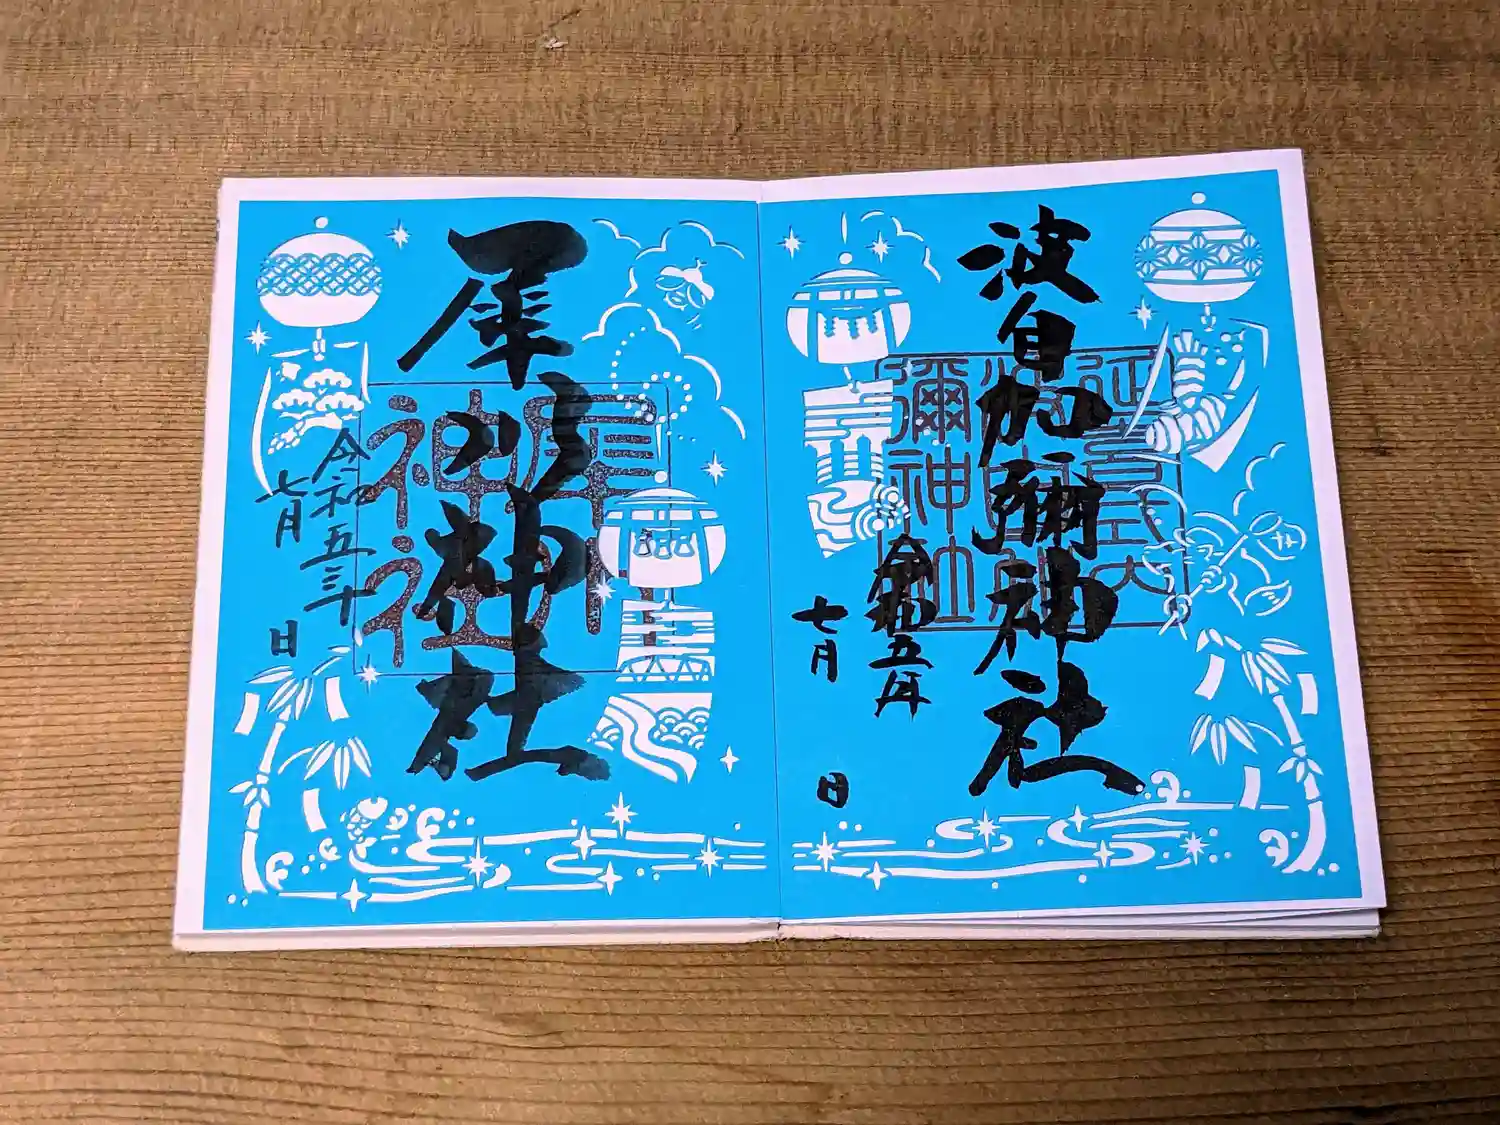 波自加彌神社
延喜式内
彌神社
令和五年
七月
日
犀川神社
犀川
神社
令和五年
七月
日